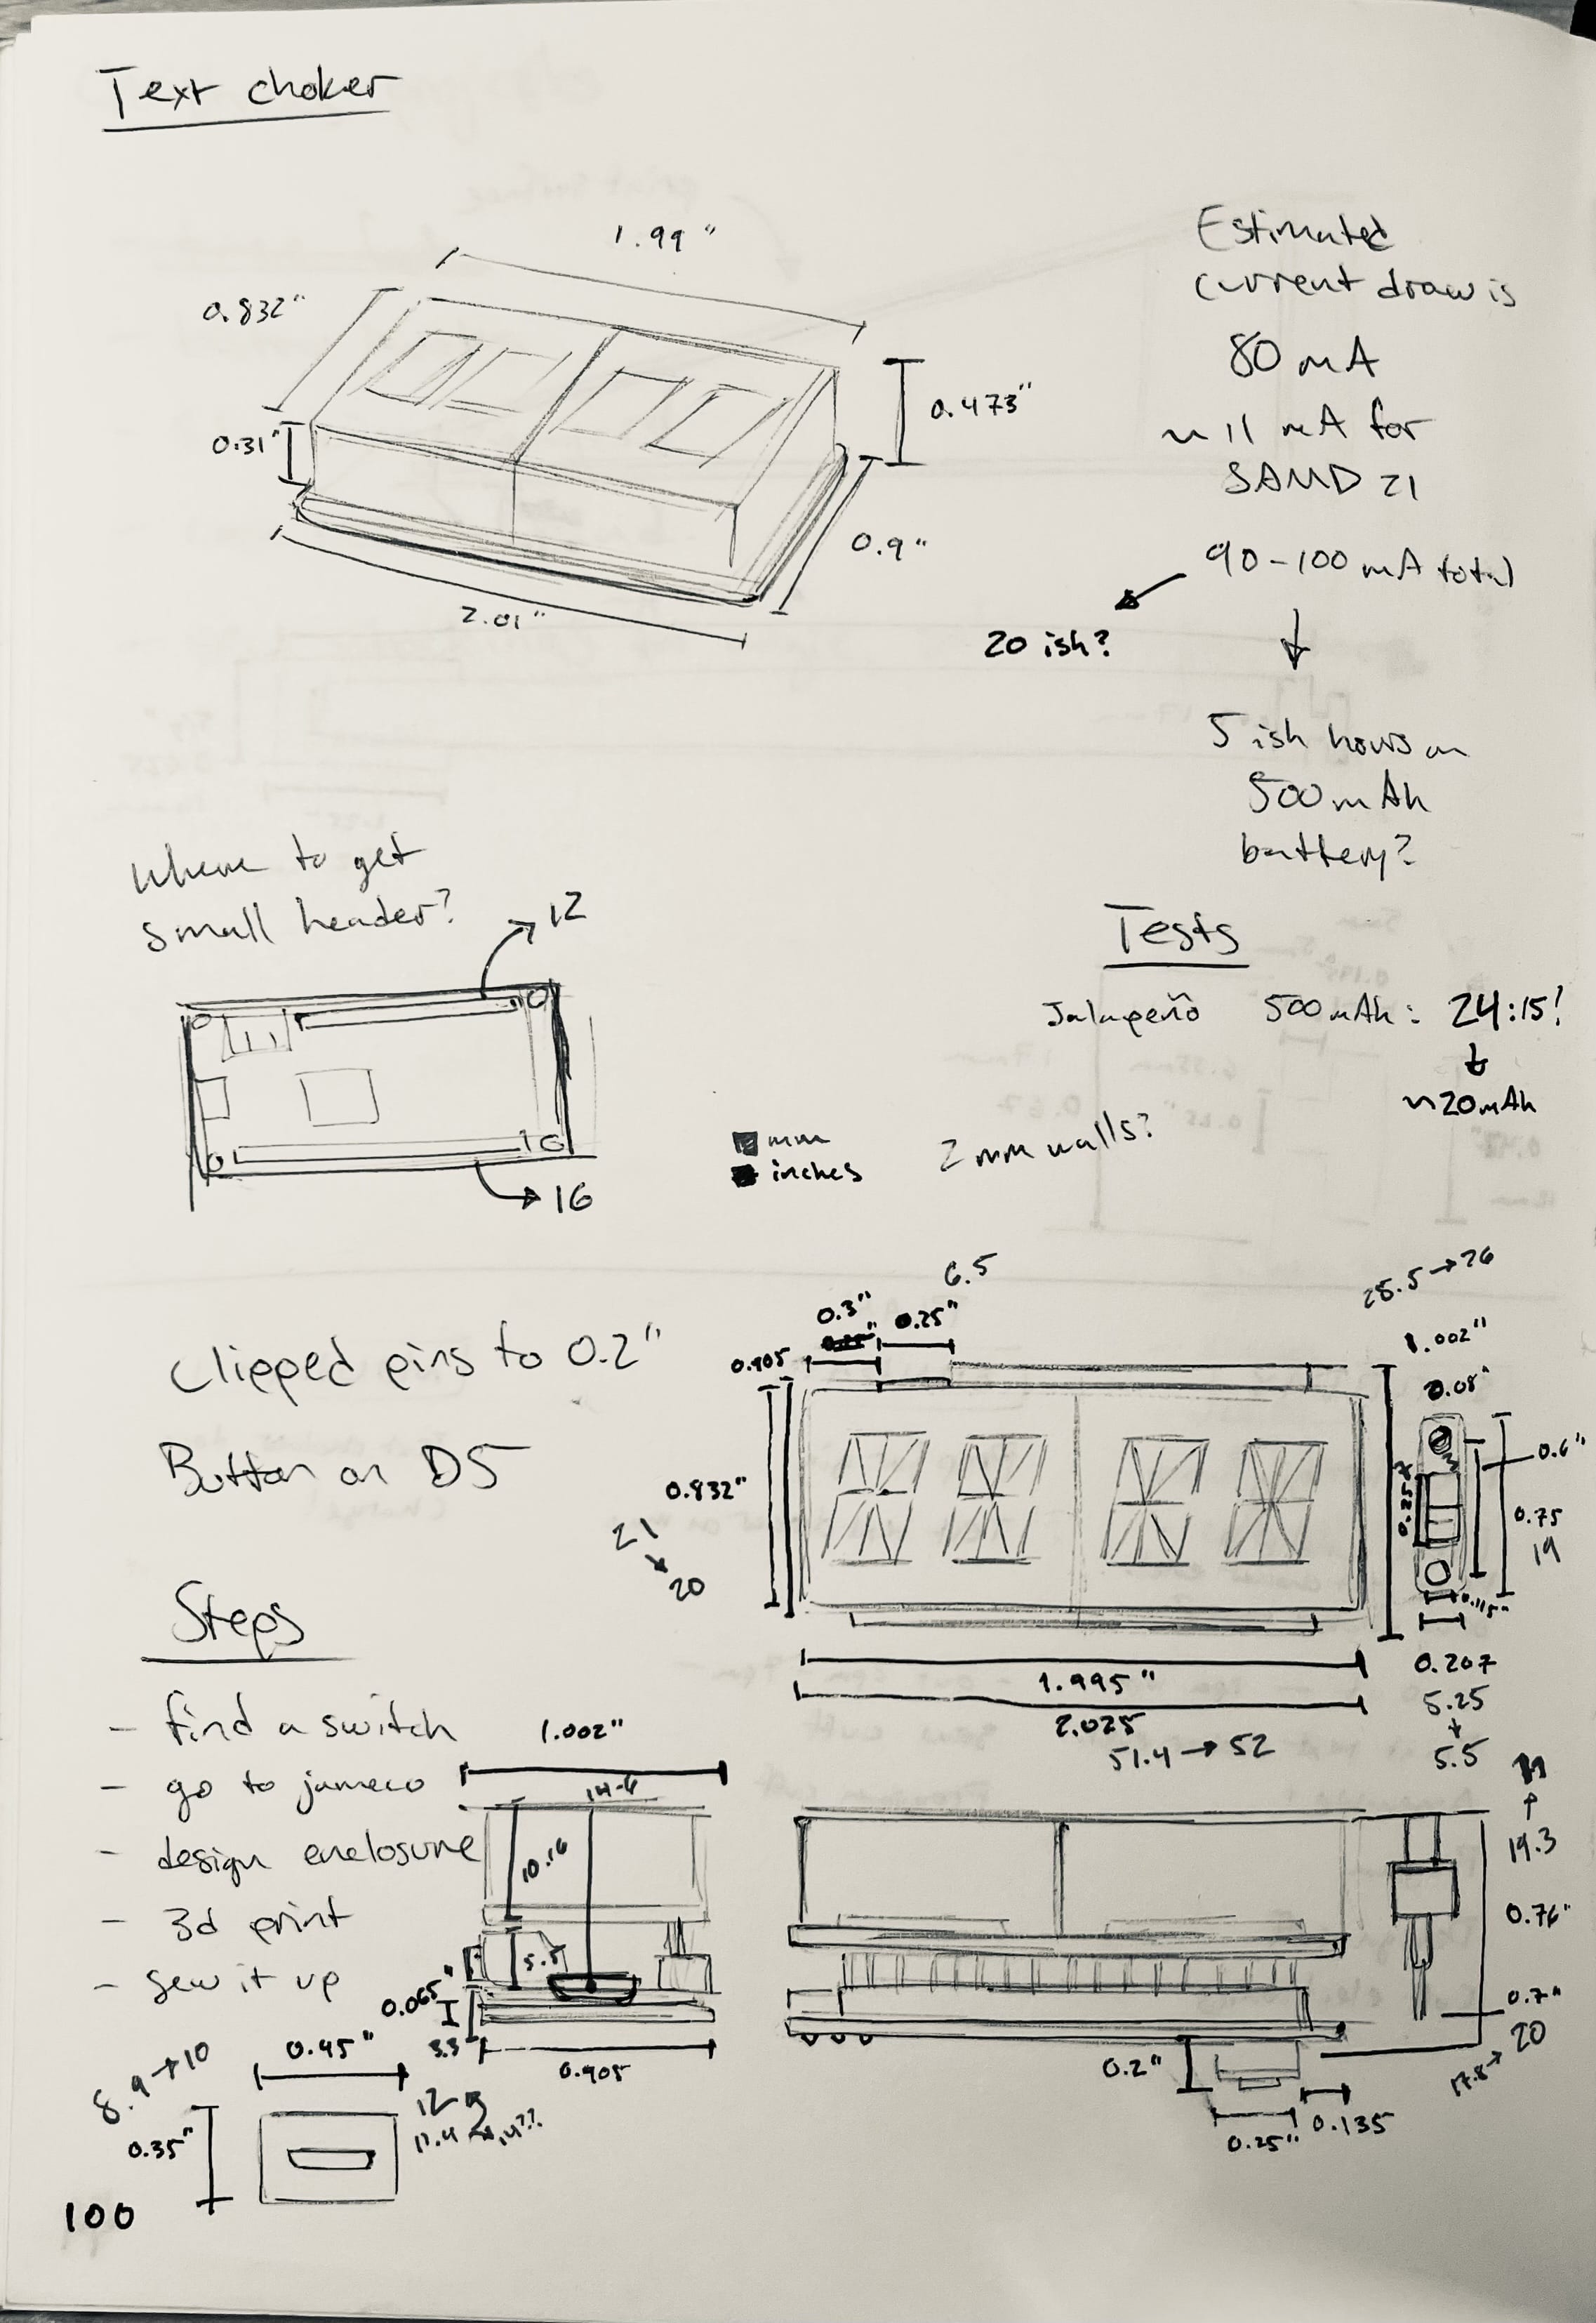 Text choker
1.99"
0.832"
0.31"
0.473"
0.9"
2.01"
Estimated
current draw is
80 mA
~ 11 mA for
SAMD 21
90-100 mA total
20 ish?
5 ish hours on
500 mAh
battery?
Where to get
small header?
12
16
Tests
Jalapeño 500 mAh: 24:15!
~20mAh
mm
inches
2 mm walls?
Clipped pins to 0.2"
Button on D5
6.5
0.3"
0.25"
0.905
0.832"
21
20
1.995"
2.025
51.4 → 52
1.002"
0.08"
0.6"
0.25"
0.75
19
0.115"
0.207
5.25
5.5
Steps
- find a switch
- go to jameco
- design enclosure
- 3d print
- sew it up
1.002"
14.6
10.16
5.5
0.065"
3.3
0.905
19.3
0.76"
0.7"
20
17.8 →
0.2"
0.25"
0.135
8.9 → 10
0.45"
0.35"
12
11.4
100